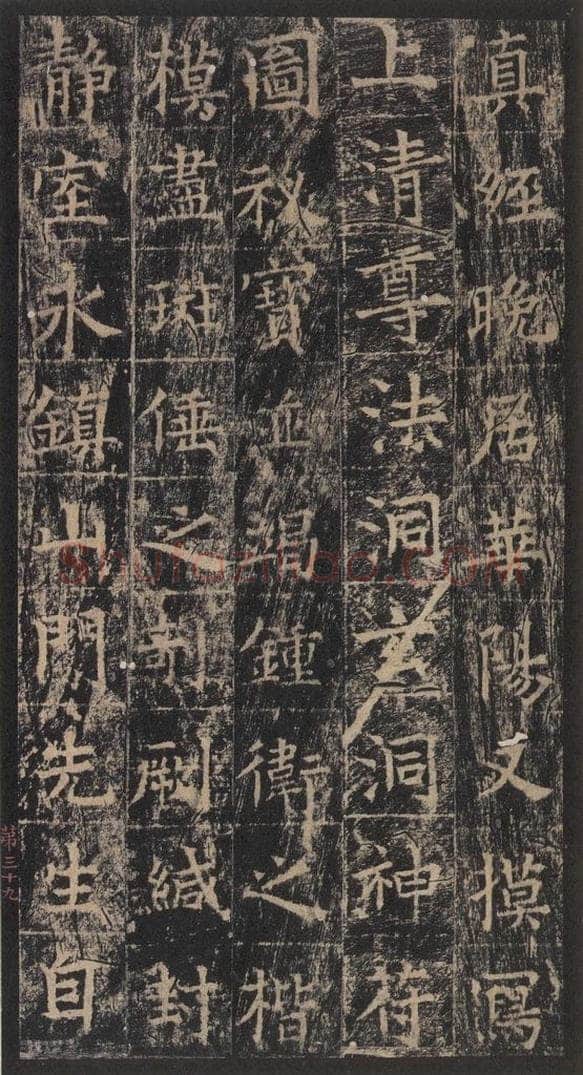 真經晚居華陽又摸寫
上清尊法洞玄洞神符
圖祕寶並竭鍾衛之楷
模盡班倕之剞劂緘封
静室永鎮山門先生自
第三十九